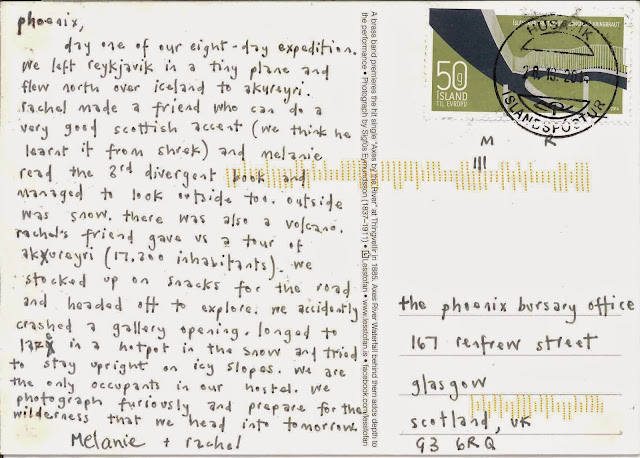 phoenix,
day one of our eight-day expedition.
we left reykjavik in a tiny plane and
flew north over iceland to akureyri.
rachel made a friend who can do a
very good scottish accent (we think he
learnt it from shrek) and melanie
read the 2rd divergent book and
managed to look outside too. outside
was snow. there was also a volcano.
rachel's friend gave us a tour of
akureyri (17.200 inhabitants). we
stocked up on snacks for the road
and headed off to explore. we accidently
crashed a gallery opening. longed to
laze in a hotpot in the snow and tried
to stay upright on icy slopes. we are
the only occupants in our hostel. we
photograph furiously and prepare for the
wilderness that we head into tomorrow.
Melanie + rachel
A brass band premieres the hit single "Axes by the River" at Thingvellir in 1885. Axes River Waterfall behind them adds depth to
the performance • Photograph by Sigfús Eymundsson (1837–1911) • Lesstofan • www.lesstofan.is • facebook.com/lesstofan
50g
ÍSLAND
TIL EVRÓPU
HÚSAVÍK
ÍSLANDSPÓSTUR
M R
the phoenix bursary office
167 renfrew street
glasgow
scotland, uk
G3 6RQ